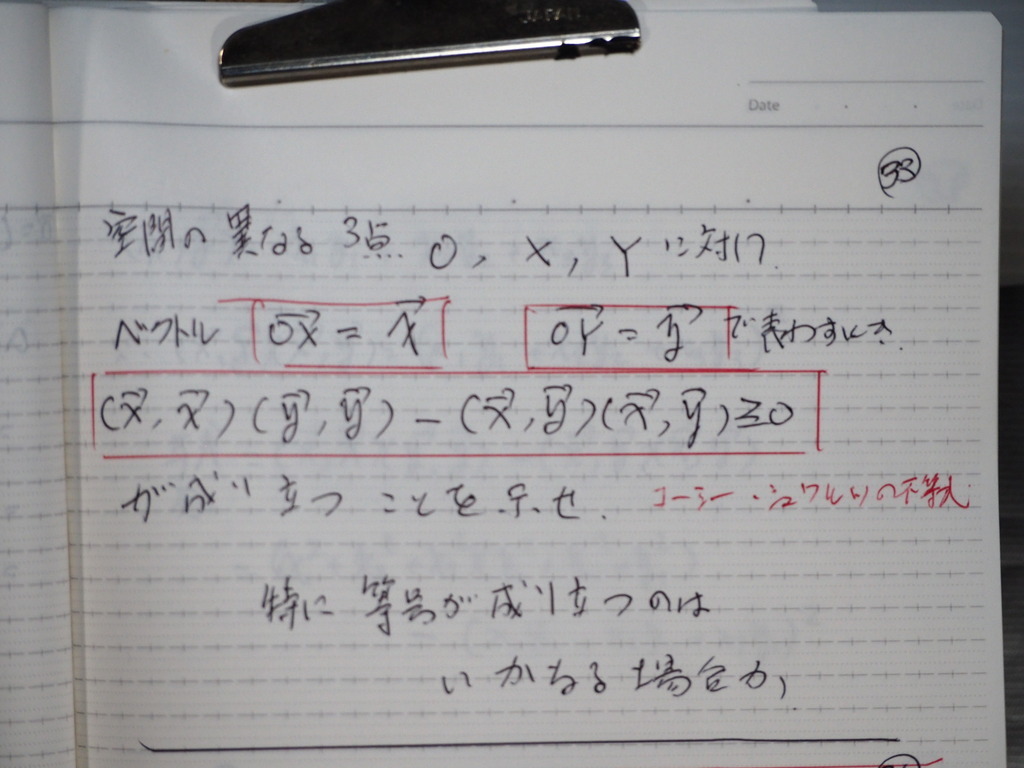 JAPAN
Date
33
空間の異なる3点 O, X, Y に対し
ベクトル OX = x OY = y で表わすとき.
(x, x)(y, y) - (x, y)(x, y) ≥ 0
が成り立つことを示せ.
コーシー・シュワルツの不等式
特に等号が成り立つのは
いかなる場合か,